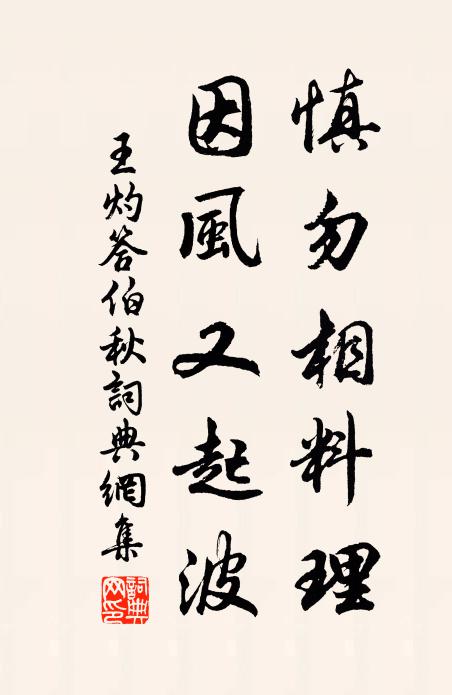 慎勿相料理
因風又起波
王灼答伯秋詞典網集
詞典網印